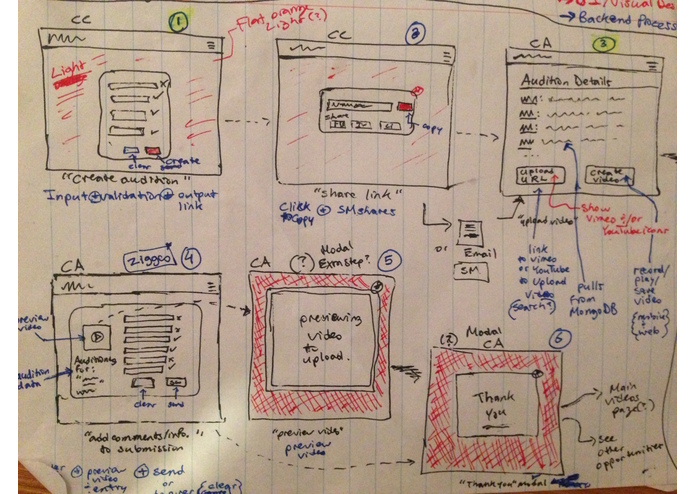 UI/Visual Des
→ Backend Process
CC
1
Flat orange
Light (?)
Light
clear
create
"Create audition"
Input + validation + output
link
CC
2
share
copy
"share link"
Click
to copy
+ SM shares
CA
3
Audition Details
Upload
URL
Create
video
"upload video"
show
Vimeo &/or
Youtube icons
link
to Vimeo
or YouTube
to upload
video
(search?)
pulls
from
MongoDB
record/
play/
save
video
{mobile}
{web}
Email
or
SM
CA
ziggeo
4
preview
video
audition
data
Auditioning
for:
clear
send
"add comments/info.
to submission
+ preview
video
entry
+ send
or
{clear}
CA
(?)
Modal
Extra step?
5
previewing
video
to
upload.
"preview video"
preview
video
(?)
Modal
CA
6
Thank
you
"Thank you" modal
Main
videos
page(?)
see
other
opportunities